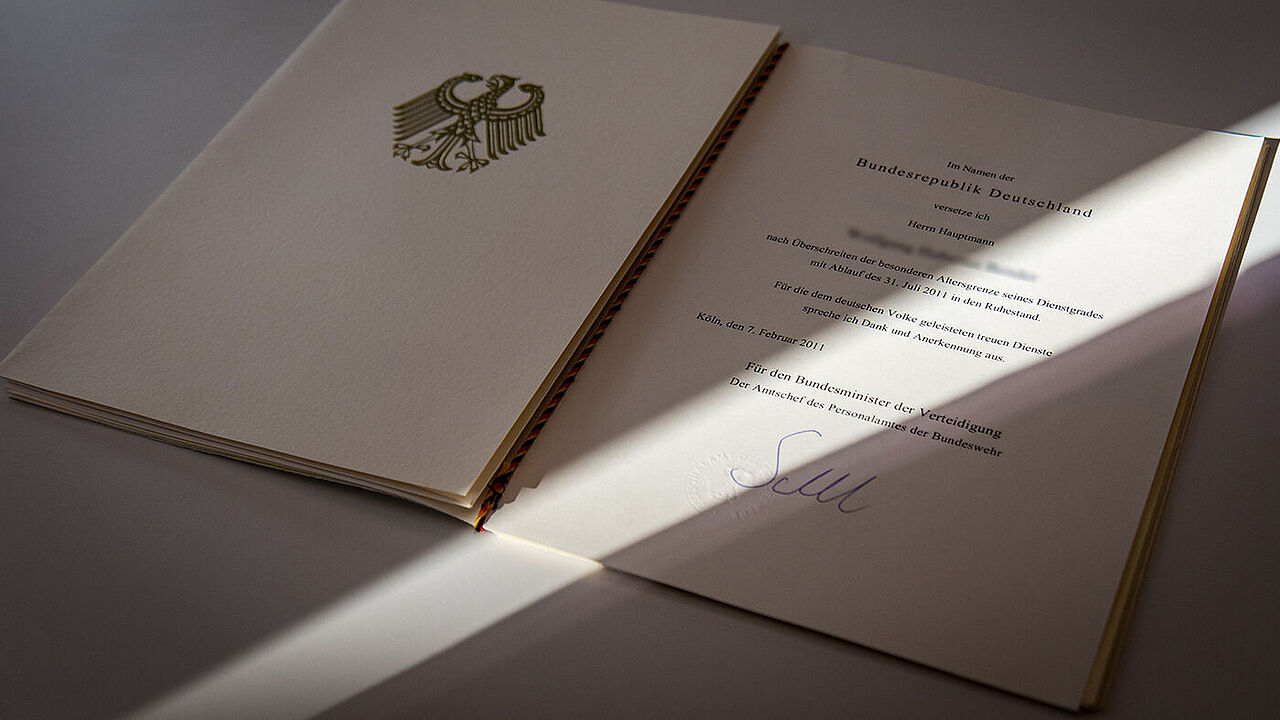 Im Namen der
Bundesrepublik Deutschland
versetze ich
Herrn Hauptmann
nach Überschreiten der besonderen Altersgrenze seines Dienstgrades
mit Ablauf des 31. Juli 2011 in den Ruhestand.
Für die dem deutschen Volke geleisteten treuen Dienste
spreche ich Dank und Anerkennung aus.
Köln, den 7. Februar 2011
Für den Bundesminister der Verteidigung
Der Amtschef des Personalamtes der Bundeswehr